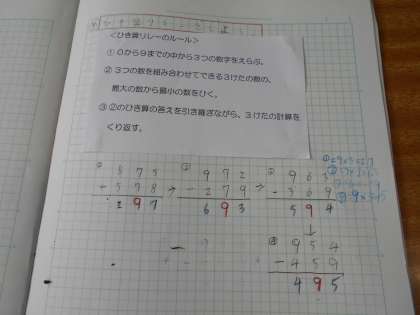 <ひき算リレーのルール>
① 0から9までの中から3つの数字をえらぶ。
② 3つの数を組み合わせてできる3けたの数の、
最大の数から最小の数をひく。
③ ②のひき算の答えを引き継ぎながら、3けたの計算を
くり返す。
875 972 963
- 578 → - 279 → - 369
297 693 594
↓
954
- 459
495